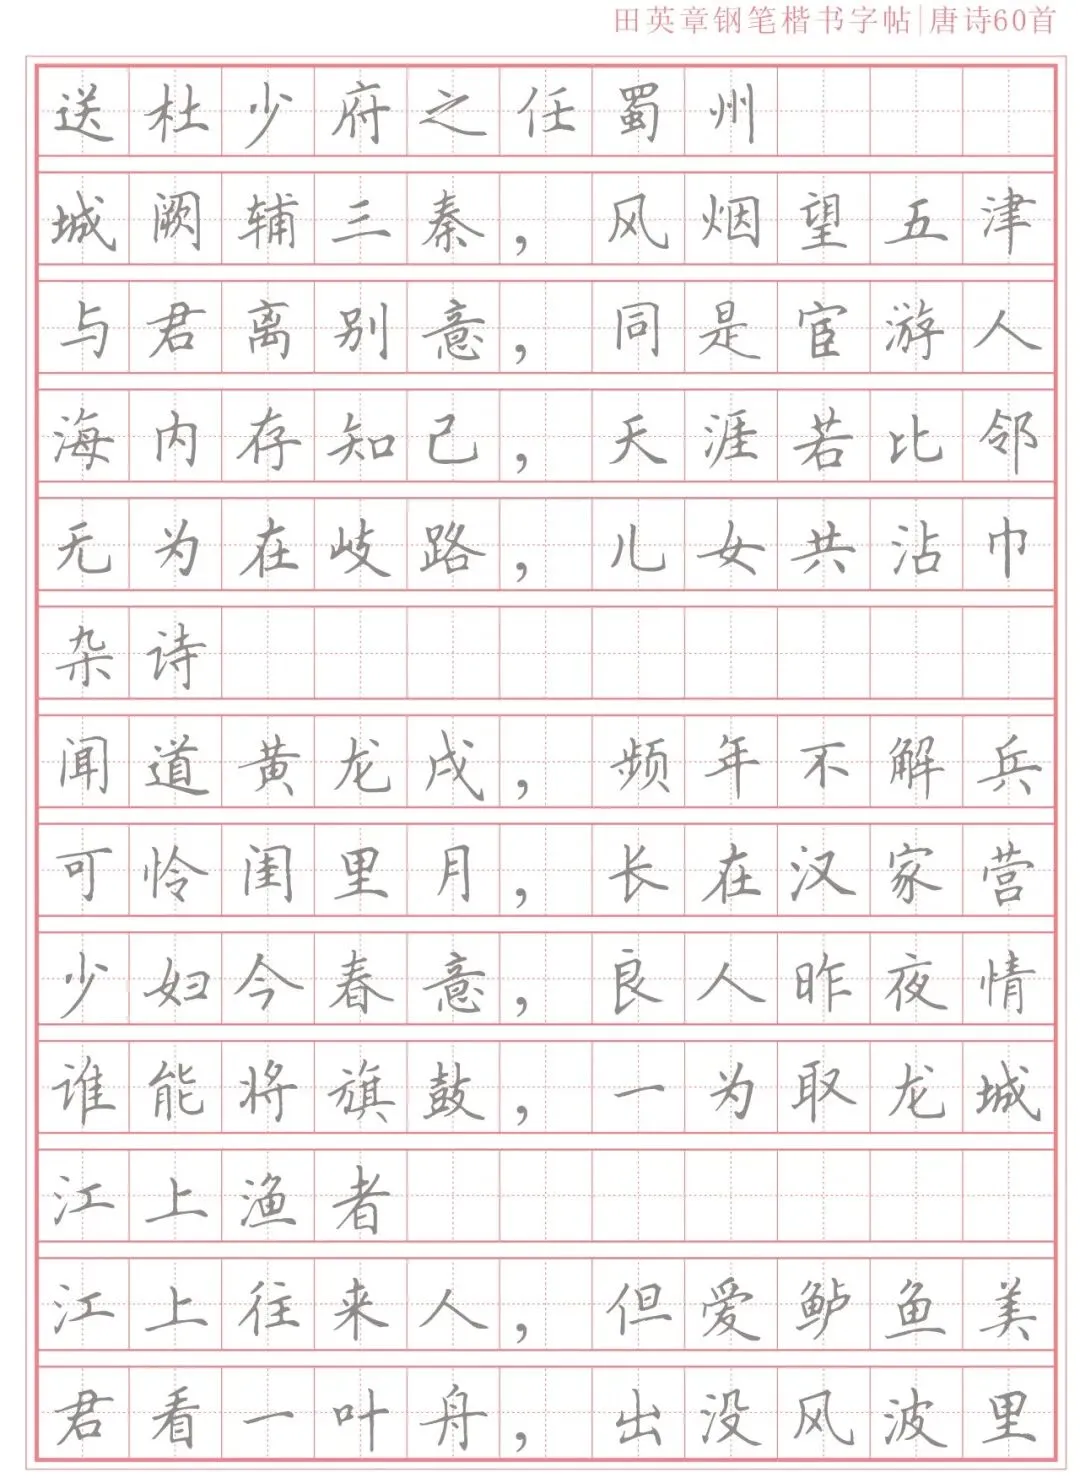 田英章钢笔楷书字帖|唐诗60首
送杜少府之任蜀州
城阙辅三秦，风烟望五津
与君离别意，同是宦游人
海内存知己，天涯若比邻
无为在岐路，儿女共沾巾
杂诗
闻道黄龙戍，频年不解兵
可怜闺里月，长在汉家营
少妇今春意，良人昨夜情
谁能将旗鼓，一为取龙城
江上渔者
江上往来人，但爱鲈鱼美
君看一叶舟，出没风波里